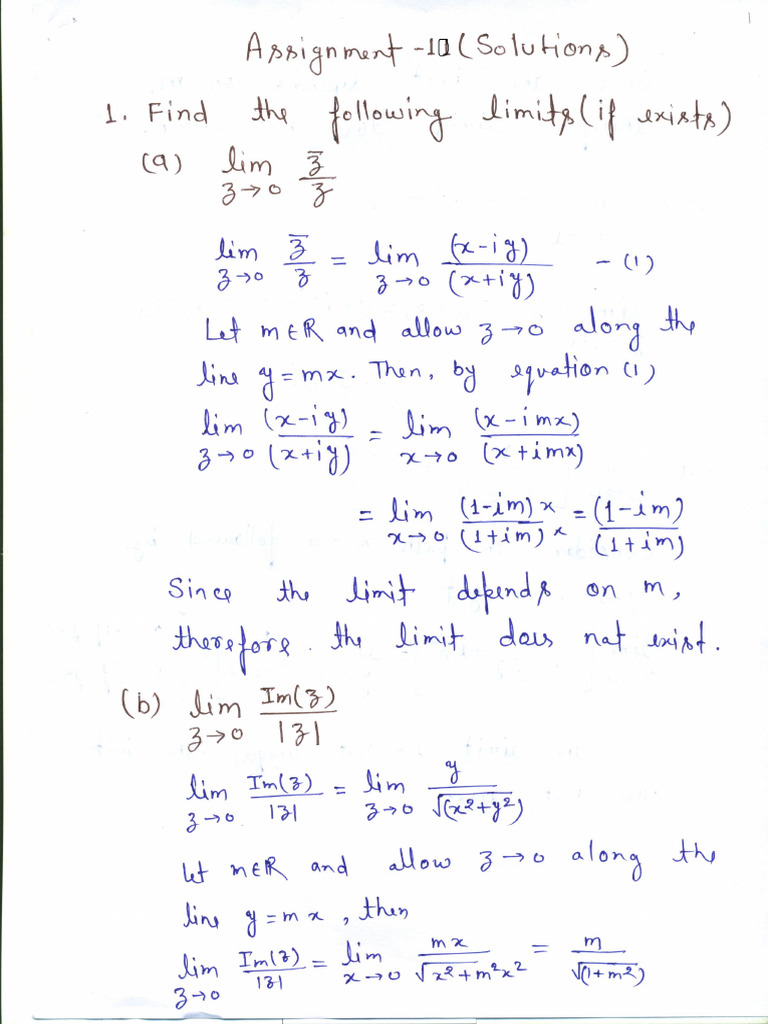 1
Assignment -10 (Solutions)
1. Find the following limits (if exists)
(a) lim z→0 z̄/z
lim z→0 z̄/z = lim z→0 (x-iy)/(x+iy) - (1)
Let m∈R and allow z→0 along the
line y=mx. Then, by equation (1)
lim z→0 (x-iy)/(x+iy) = lim x→0 (x-imx)/(x+imx)
= lim x→0 (1-im)x/(1+im)x = (1-im)/(1+im)
Since the limit depends on m,
therefore. the limit does not exist.
(b) lim z→0 Im(z)/|z|
lim z→0 Im(z)/|z| = lim z→0 y/√(x²+y²)
Let m∈R and allow z→0 along the
line y=mx, then
lim z→0 Im(z)/|z| = lim x→0 mx/√x²+m²x² = m/√(1+m²)